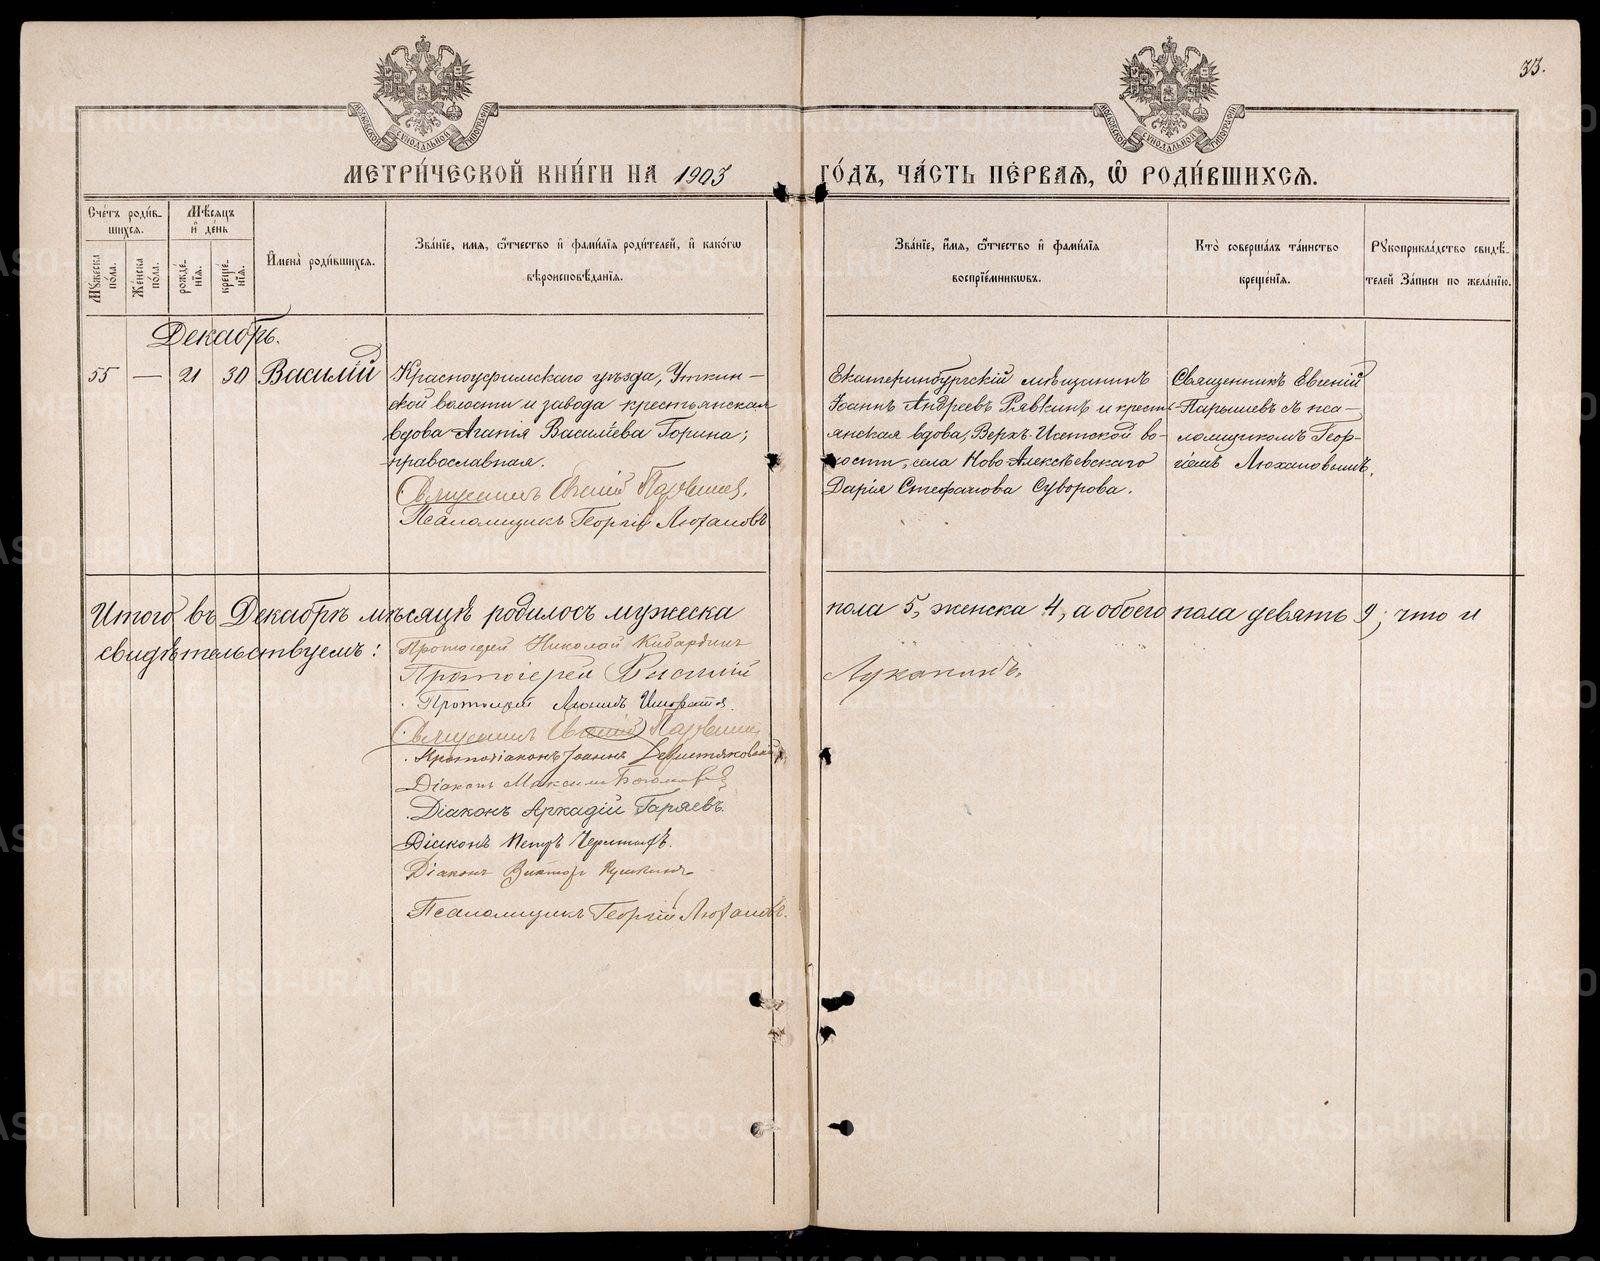 33.
МЕТРИ́ЧЕСКОЙ КНИ́ГИ НА 1903 ГО́ДЪ, ЧА́СТЬ ПЕ́РВАѦ, Ѡ҆ РОДИ́ВШИХСѦ.
Сче́тъ роди́в-
шихсѧ.
Мѣ́сяцъ
и҆ де́нь
Мꙋ́жеска
по́ла.
Же́нска
по́ла.
рожде́-
нїѧ.
креще́-
нїѧ.
И҆мена̀ роди́вшихсѧ.
Зва́нїе, и҆мѧ, ѻ҆́тчество и҆ фами́лїѧ роди́телей, и҆ како́гѡ
вѣроисповѣ́данїѧ.
Зва́нїе, и҆́мѧ, ѻ҆́тчество и҆ фами́лїѧ
воспрїе́мникѡвъ.
Кто̀ соверша́лъ та́инство
креще́нїѧ.
Рꙋкоприкла́дство свидѣ́-
телей За́писи по жела́нїю.
Декабрь.
55 — 21 30 Василій
Красноуфимскаго уѣзда, Уткин-
ской волости и завода крестьянская
вдова Агапія Васильева Горина;
православная.
Священникъ Евгеній Парышев.
Псаломщикъ Георгій Люхановъ
Екатеринбургскій мѣщанинъ
Іоаннъ Андреевъ Рявкинъ и кресть-
янская вдова, Верхъ-Исетской во-
лости, села Ново-Алексѣевскаго
Дарія Стефанова Суворова.
Священникъ Евгеній
Парышевъ съ пса-
ломщикомъ Геор-
гіемъ Люхановымъ.
Итого въ Декабрѣ мѣсяцѣ родилось мужеска пола 5, женска 4, а обоего пола девять 9; что и
свидѣтельствуемъ:
Протоіерей Николай Кибардинъ
Протоіерей Василій Луканинъ.
Протоіерей Леонидъ Игноратов.
Священникъ Евгеній Парышев
Протодіаконъ Іоаннъ
Діаконъ Максим
Діаконъ Аркадій Гаряевъ.
Діаконъ Петръ
Діаконъ Викторъ Пушкинъ
Псаломщикъ Георгій Люхановъ.
METRIKI.GASO-URAL.RU